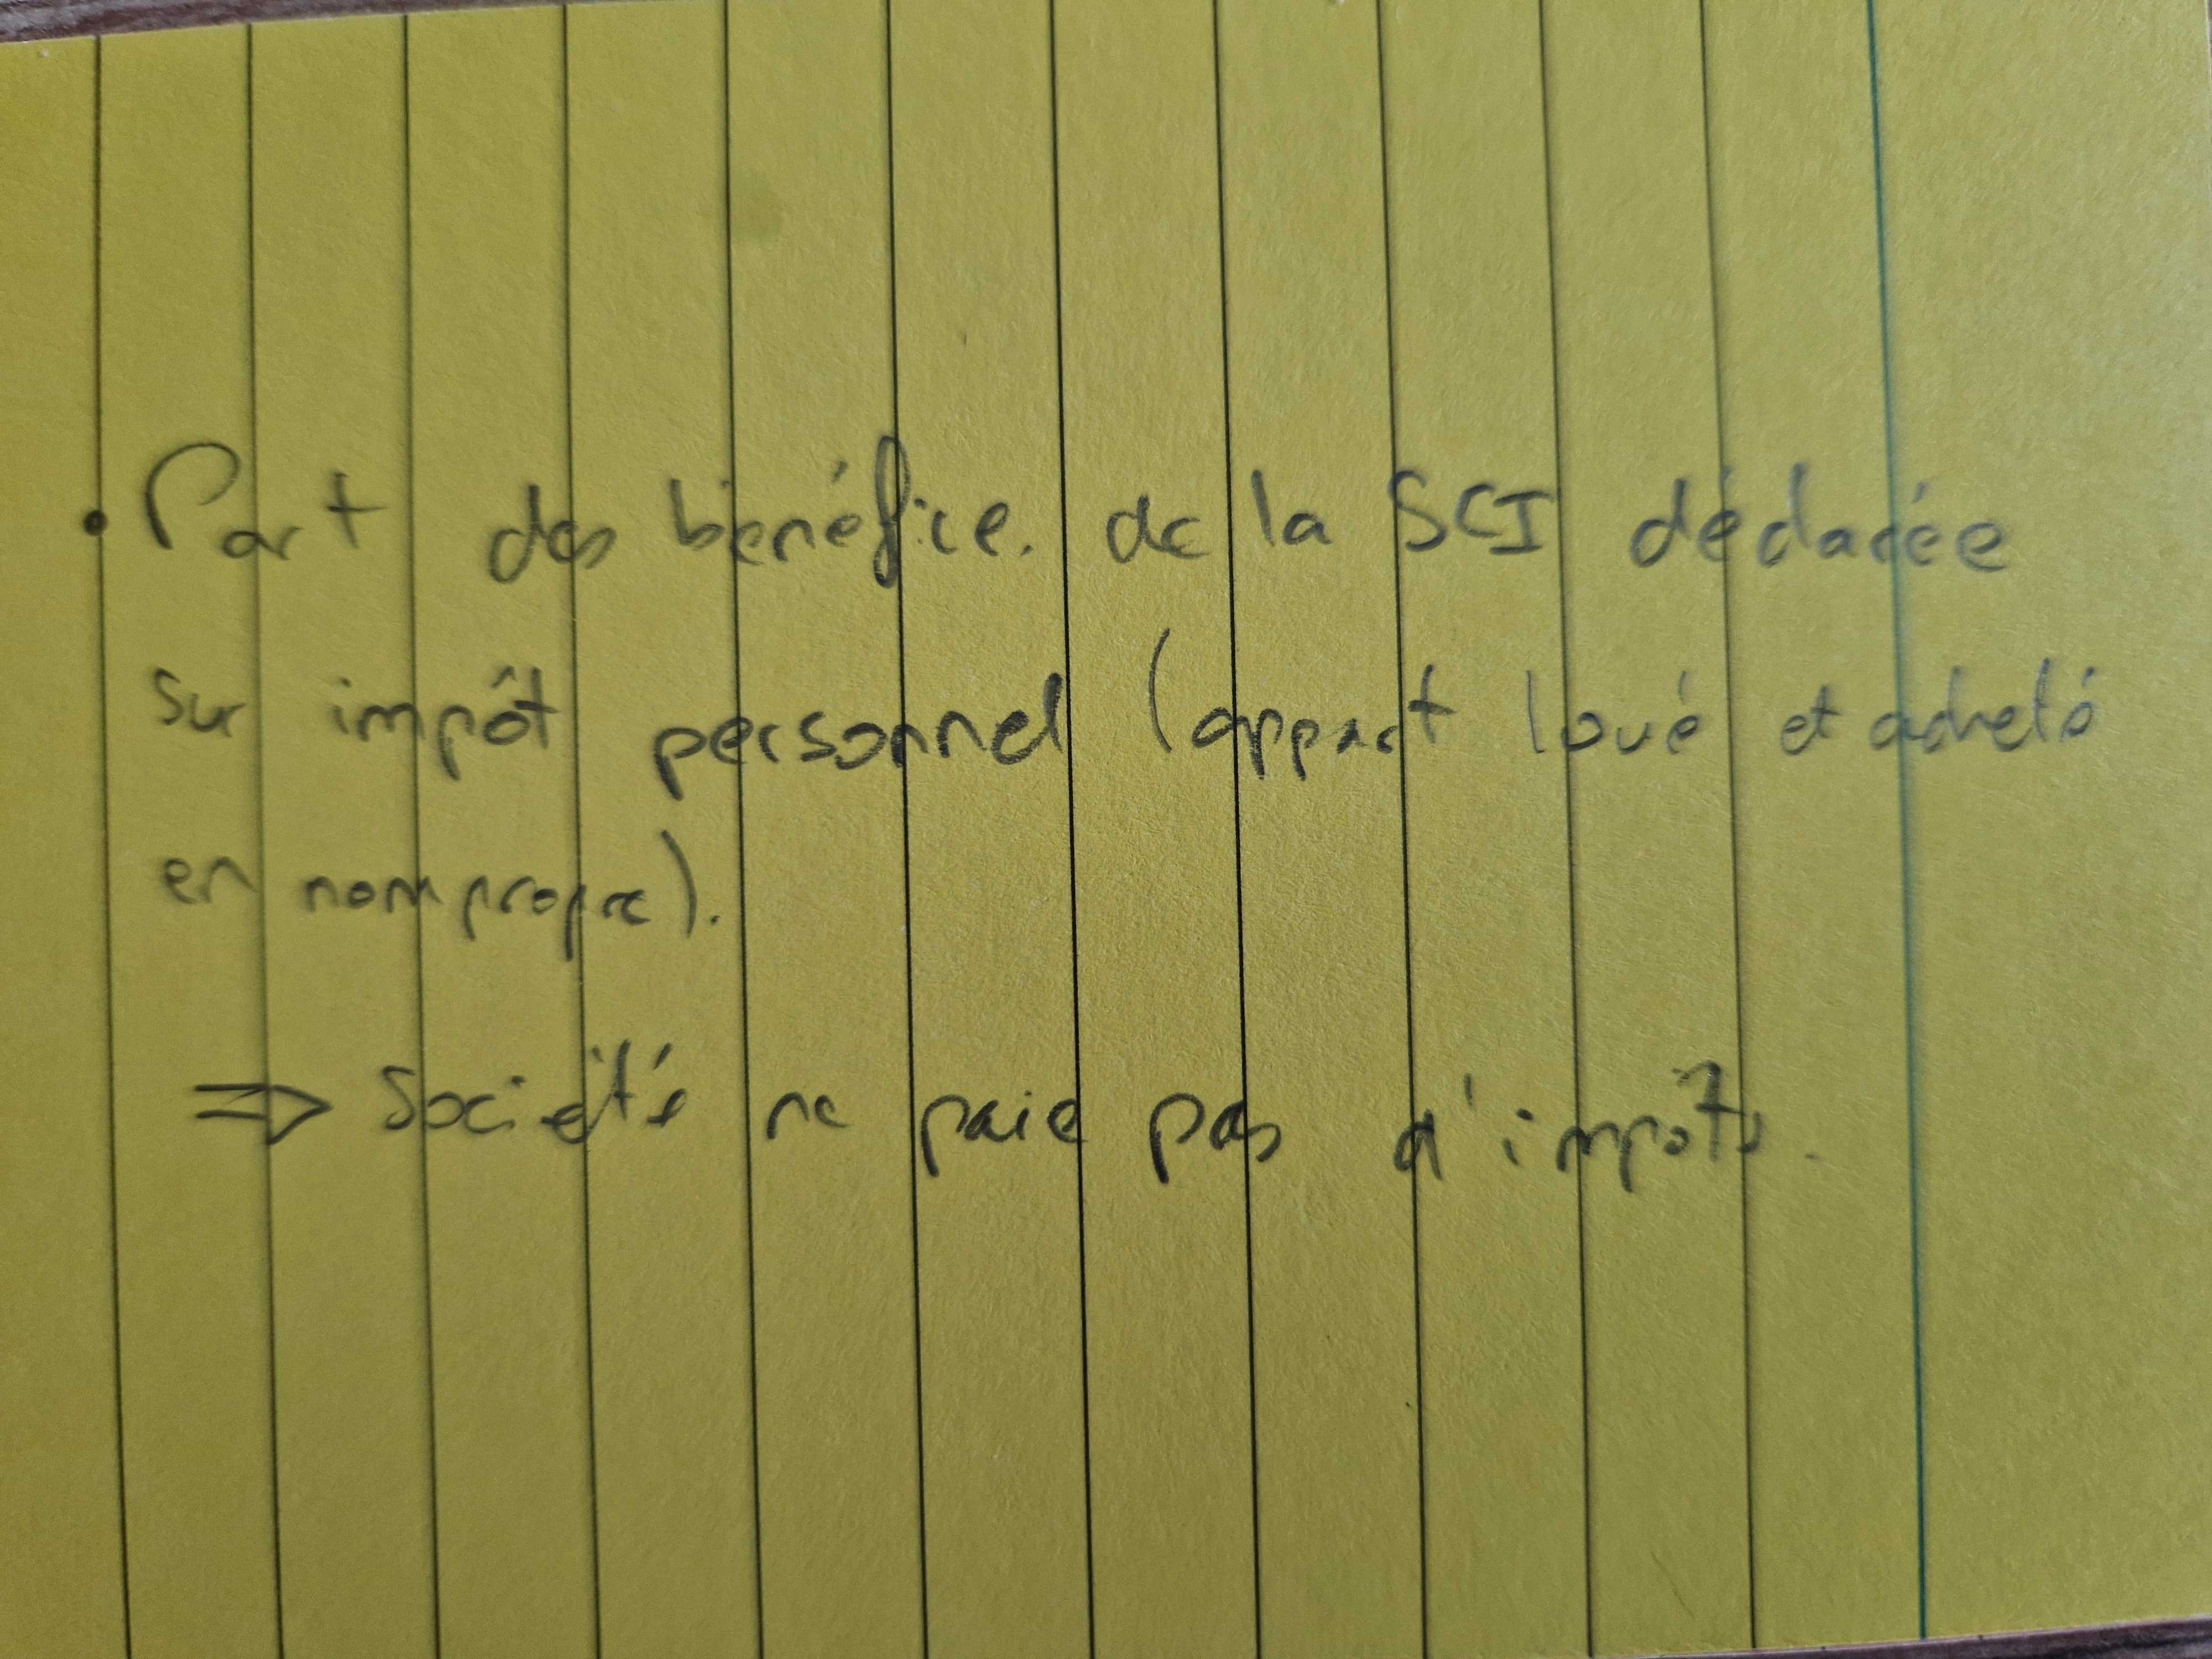 • Part des bénéfice. de la SCI déclarée
sur impôt personnel (appart loué et acheté
en nom propre).
⇒ Société ne paie pas d'impôts.